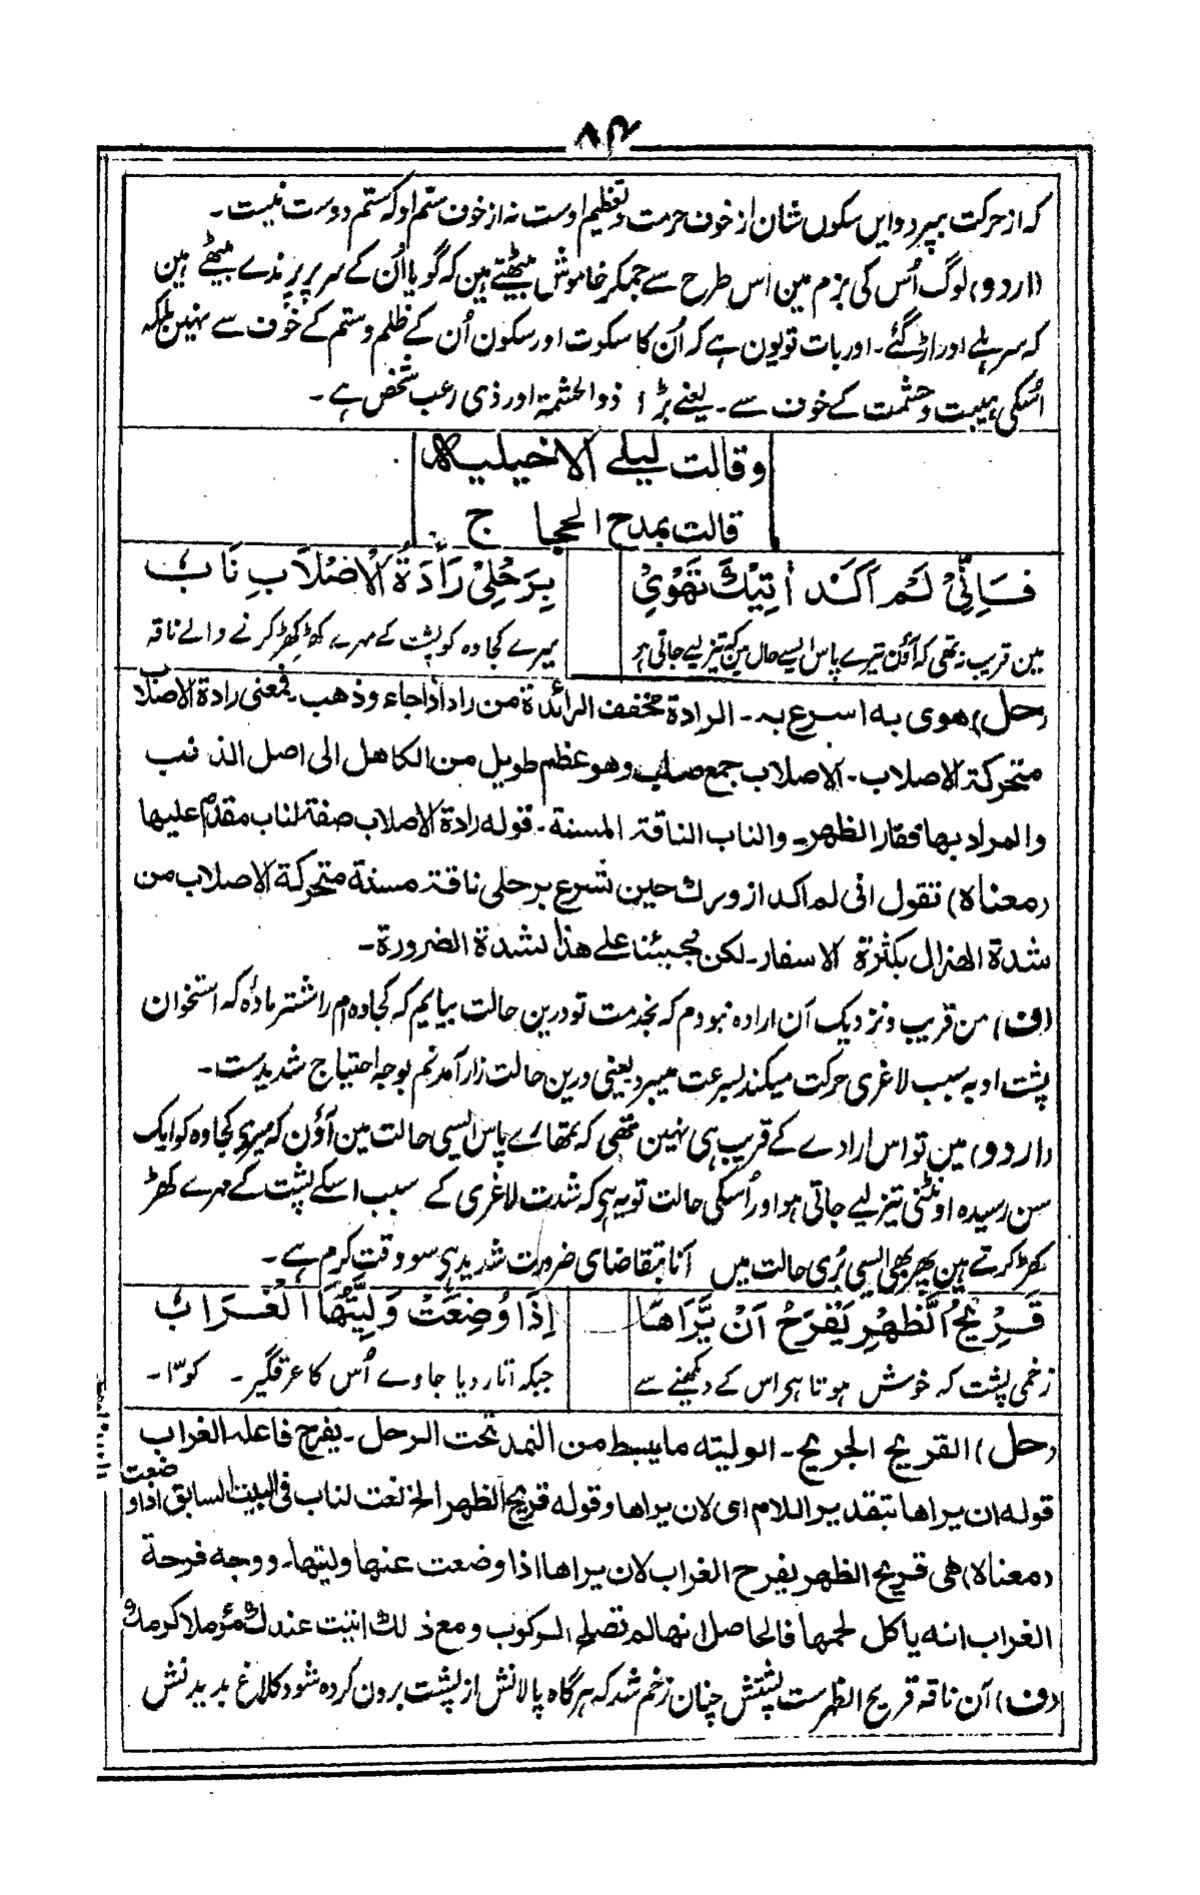 ۸۴
که از حرکت بپرد و این سکون شان از خوف حرمت و تعظیم اوست نه از خوف ستم او که ستم دوست نیست۔
(اردو) لوگ اُس کی بزم مین اس طرح سے جمکر خاموش بیٹھتے ہین کہ گویا اُن کے سر پر پرندے بیٹھے ہین
کہ سر ہلے اور اڑ گئے۔ اور بات تو یون ہے کہ اُن کا سکوت اور سکون اُن کے ظلم و ستم کے خوف سے نہین بلکہ
اُسکی ہیبت و حشمت کے خوف سے۔ یعنے بڑا ذو الحشمة اور ذی رعب شخص ہے۔
وقالت لیلے الاخیلیة
قالت بمدح الحجاج
فَاِنِّیْ لَمْ اَکَدْ اٰتِیْكَ تَهْوِیْ
بِرَحْلِیْ رَأْدَةُ الْاَصْلَابِ نَابٗ
مین قریب نہ تھی کہ آؤن تیرے پاس ایسے حال مین کہ تیز لیے جاتی ہو
میرے کجاوہ کو پشت کے مہرے کھڑ کھڑ کرنے والے ناقہ
(حل) هوی به اسرع به۔ الرادة مخفف الرائدة من راد اذا جاء وذهب۔ فمعنی رادة الاصلاب
متحرکة الاصلاب۔ الاصلاب جمع صلب وهو عظم طویل من الکاهل الی اصل الذنب
والمراد بها فقار الظهر۔ والناب الناقة المسنة۔ قوله رادة الاصلاب صفة لناب مقدم علیها
(معناه) تقول انی لم اکد ازورك حین تسرع برحلی ناقة مسنة متحرکة الاصلاب من
شدة الهزال بکثرة الاسفار۔ لکن مجیئنا علی هذا لشدة الضرورة۔
(ف) من قریب و نزدیک آن ارادہ نبودم کہ بخدمت تو درین حالت بیایم کہ کجاوہ ام را شتر مادہ کہ استخوان
پشت او بہ سبب لاغری حرکت میکند بسرعت میبرد یعنی درین حالت زار آمدنم بوجہ احتیاج شدیدست۔
(اردو) مین تو اس ارادے کے قریب ہی نہین تھی کہ تمھارے پاس ایسی حالت مین آؤن کہ میری کجاوہ کو ایک
سن رسیدہ اونٹنی تیز لیے جاتی ہو اور اُسکی حالت تو یہ ہی کہ شدت لاغری کے سبب اسکے پشت کے مہرے کھڑ
کھڑ کرتے ہین پھر بھی ایسی بُری حالت میں آنا بتقاضای ضرورت شدید ہی سو وقتِ کرم ہے۔
قَرِیْحُ الظَّهْرِ یَفْرَحُ اَنْ یَّرَاهَا
اِذَا وُضِعَتْ وَلِیَّتُهَا الْغُرَابٗ
زخمی پشت کہ خوش ہوتا ہی اس کے دیکھنے سے
جبکہ اتار دیا جاوے اُس کا عرقگیر۔ کوّا۔
(حل) القریح الجریح۔ الولیته ما یبسط من النمد تحت الرحل۔ یفرح فاعله الغراب
قوله ان یراها بتقدیر اللام ای لان یراها وقوله قریح الظهر الخ نعت لناب فی البیت السابق اذا وضعت
(معناه) هی قریح الظهر یفرح الغراب لان یراها اذا وضعت عنها ولیتها۔ ووجه فرحة
الغراب انه یاکل لحمها فالحاصل انها لم تصلح الرکوب ومع ذلك اتیت عندك مؤملا کرمك
(ف) آن ناقہ قریح الظہرست پشتش چنان زخم شد کہ ہرگاہ پالانش از پشت برون کردہ شود کلاغ بدیدنش